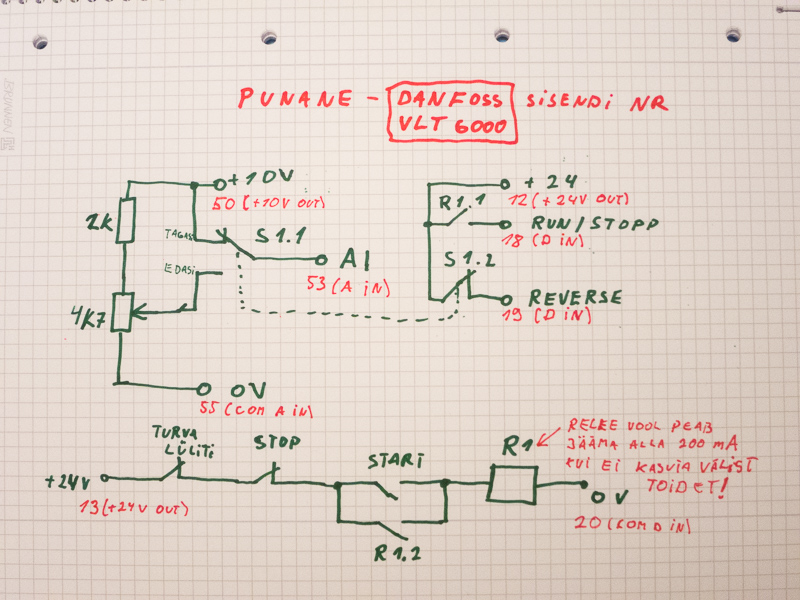 PUNANE - DANFOSS SISENDI NR
VLT 6000
+10V
50 (+10V OUT)
2K
TAGASI
S1.1
AI
53 (A IN)
EDASI
4K7
0V
55 (COM A IN)
+24
12 (+24V OUT)
R1.1
RUN/STOPP
18 (D IN)
S1.2
REVERSE
19 (D IN)
TURVA
LÜLITI
STOP
START
R1
+24V
13 (+24V OUT)
R1.2
RELEE VOOL PEAB
JÄÄMA ALLA 200 mA
KUI EI KASUTA VÄLIST
TOIDET!
0V
20 (COM D IN)